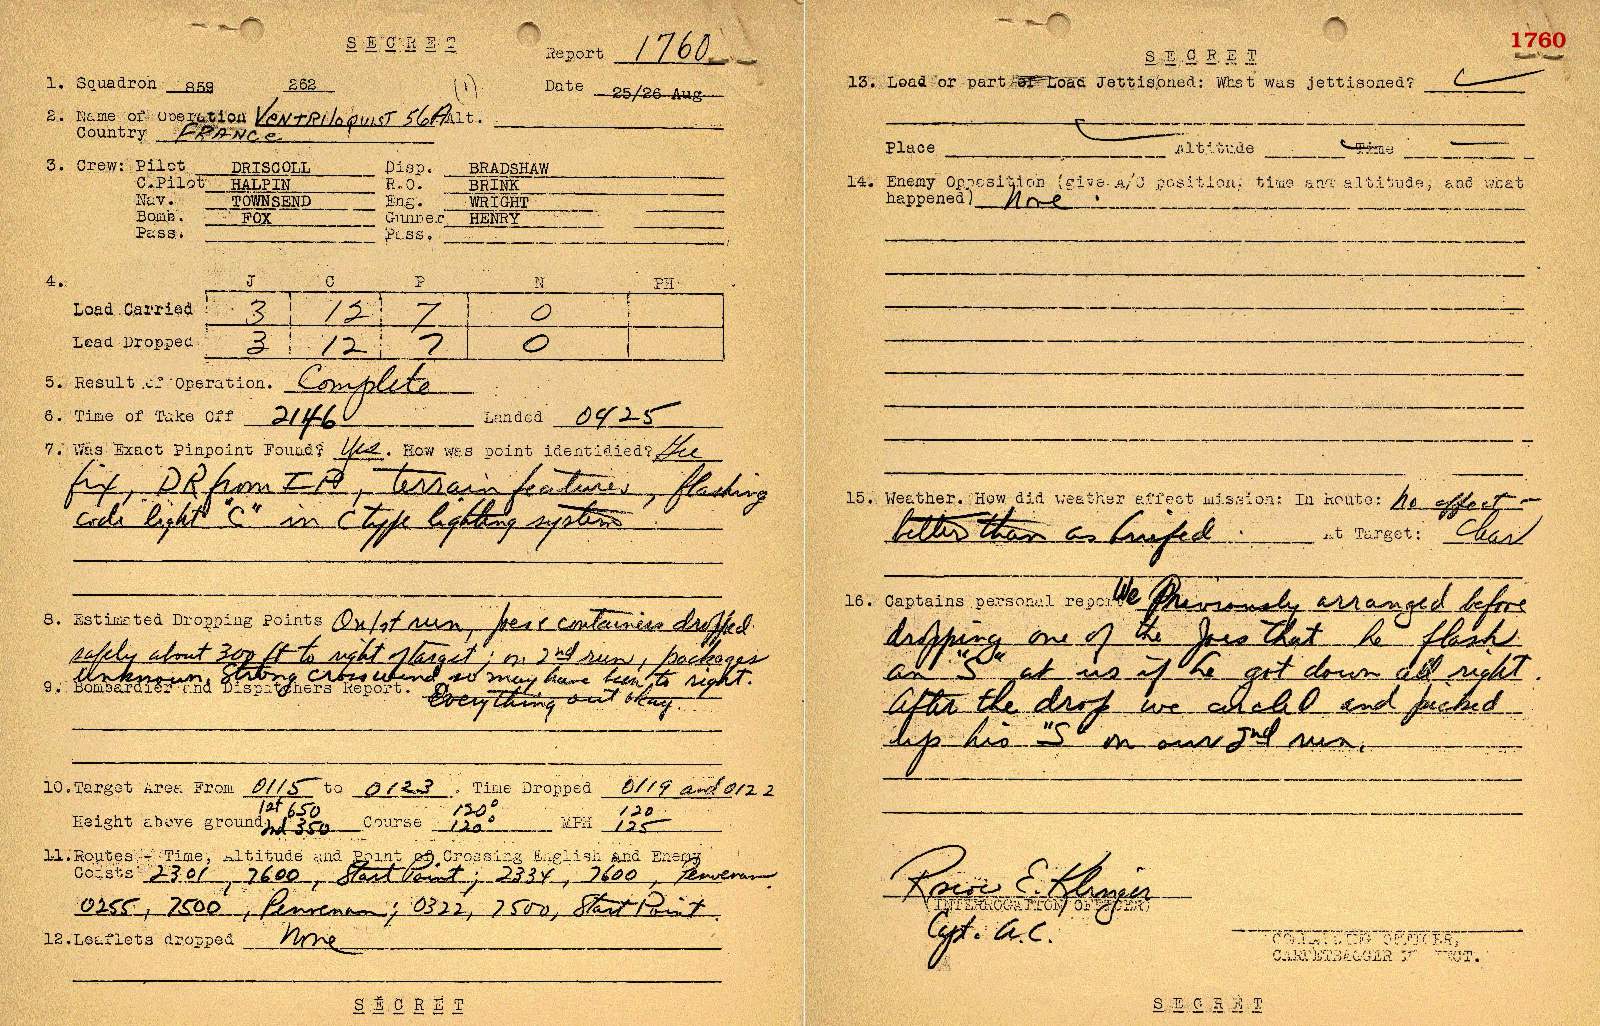 SECRET
Report 1760
1. Squadron 859 262 (1) Date 25/26 Aug
2. Name of Operation Ventriloquist 56A Alt.
Country FRANCE
3. Crew: Pilot DRISCOLL Disp. BRADSHAW
C.Pilot HALPIN R.O. BRINK
Nav. TOWNSEND Eng. WRIGHT
Bomb. FOX Gunner HENRY
Pass. Pass.
4. J C P N PH
Load Carried 3 12 7 0
Load Dropped 3 12 7 0
5. Result of Operation. Complete
6. Time of Take Off 2146 Landed 0425
7. Was Exact Pinpoint Found? Yes. How was point identidied? Gee
fix, DR from I.P., terrain features, flashing
code light "C" in C type lighting system
8. Estimated Dropping Points On 1st run, joes & containers dropped
safely about 300 ft to right of target; on 2nd run, packages
unknown. Strong crosswind so may have been to right.
9. Bombardier and Dispatchers Report. Everything out okay.
10. Target Area From 0115 to 0123. Time Dropped 0119 and 0122
Height above ground 1st 650 2nd 350 Course 120° 120° MPH 120 125
11. Routes - Time, Altitude and Point of Crossing English and Enemy
Coasts 2301, 7600, Start Point; 2334, 7600, Penvenan
0255, 7500, Penvenan; 0322, 7500, Start Point.
12. Leaflets dropped None
SECRET
SECRET
1760
13. Load or part of Load Jettisoned: What was jettisoned?
Place Altitude Time
14. Enemy Opposition (give A/C position, time and altitude, and what
happened) None.
15. Weather. How did weather affect mission: In Route: No effect -
better than as briefed. At Target: Clear
16. Captains personal report We Previously arranged before
dropping one of the Joes that he flash
an "S" at us if he got down all right.
After the drop we circled and picked
up his "S" on our 2nd run.
Roscoe E. Klinger
(INTERROGATION OFFICER)
Capt. A.C.
COMMANDING OFFICER,
CARPETBAGGER PROJECT.
SECRET